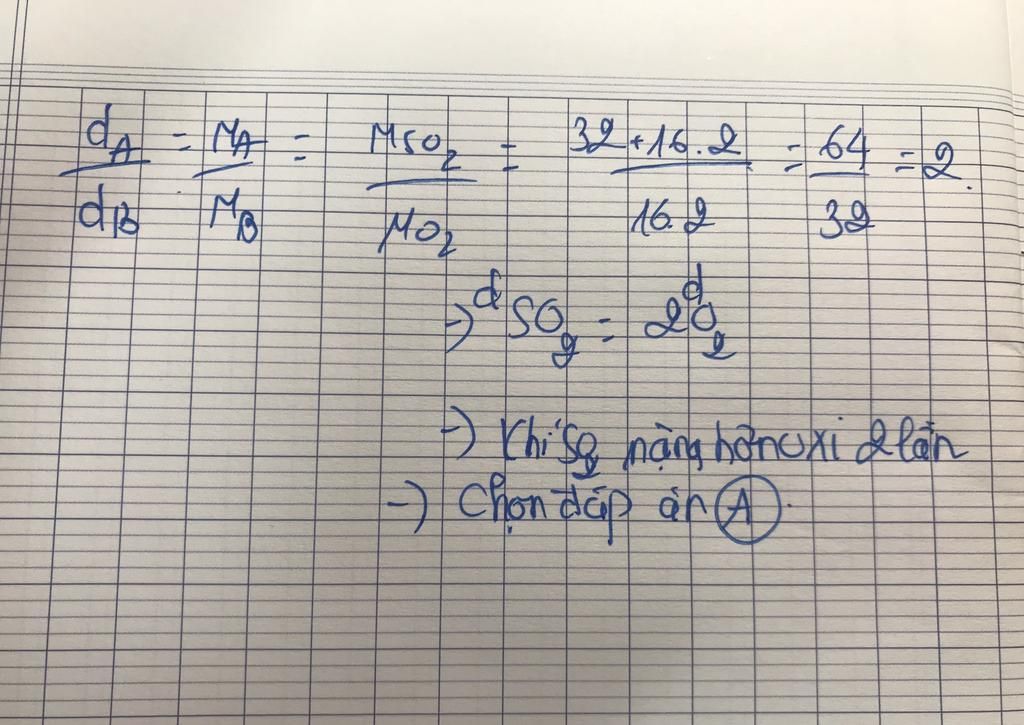 d_A/d_B = M_A/M_B = M_SO₂/M_O₂ = (32+16.2)/(16.2) = 64/32 = 2.
→ d SO₂ = 2 d O₂
→ Khí SO₂ nặng hơn oxi 2 lần
→ Chọn đáp án A.